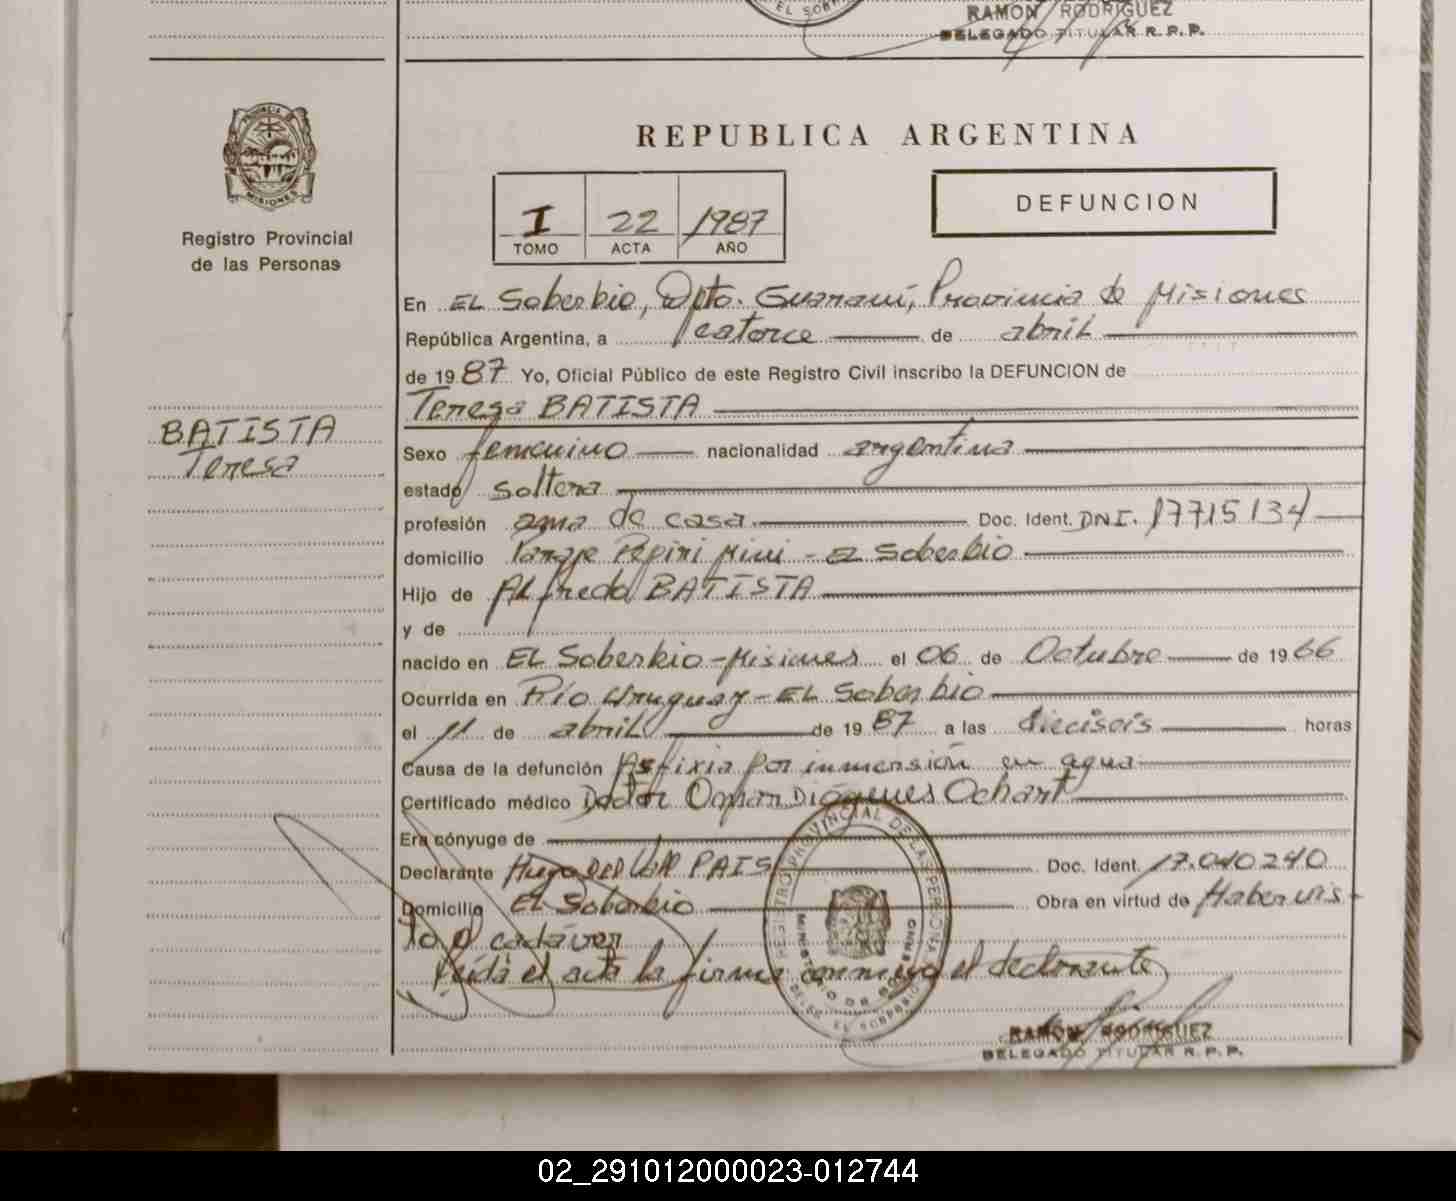 RAMON RODRIGUEZ
DELEGADO TITULAR R. P. P.
PROVINCIA DE
MISIONES
Registro Provincial
de las Personas
REPUBLICA ARGENTINA
I 22 1987
TOMO ACTA AÑO
DEFUNCION
En EL Soberbio, Dpto. Guaraní, Provincia de Misiones
República Argentina, a catorce de abril
de 1987 Yo, Oficial Público de este Registro Civil inscribo la DEFUNCION de
Teresa BATISTA
BATISTA
Teresa
Sexo femenino nacionalidad argentina
estado soltera
profesión ama de casa. Doc. Ident. DNI. 17715134
domicilio Paraje Pepiri Mini - EL Soberbio
Hijo de Alfredo BATISTA
y de
nacido en EL Soberbio - Misiones el 06 de Octubre de 1966
Ocurrida en Río Uruguay - EL Soberbio
el 11 de abril de 1987 a las dieciseis horas
Causa de la defunción Asfixia por inmersión en agua
Certificado médico Doctor Omar Diógenes Ochart
Era cónyuge de
Declarante Hugo PAIS Doc. Ident. 17.040240
Domicilio El Soberbio Obra en virtud de Haber vis-
to el cadáver
Leída el acta la firma conmigo el declarante
REGISTRO PROVINCIAL DE LAS PERSONAS
MINISTERIO DE GOBIERNO
DELEG. EL SOBERBIO
RAMON RODRIGUEZ
DELEGADO TITULAR R. P. P.
02_291012000023-012744